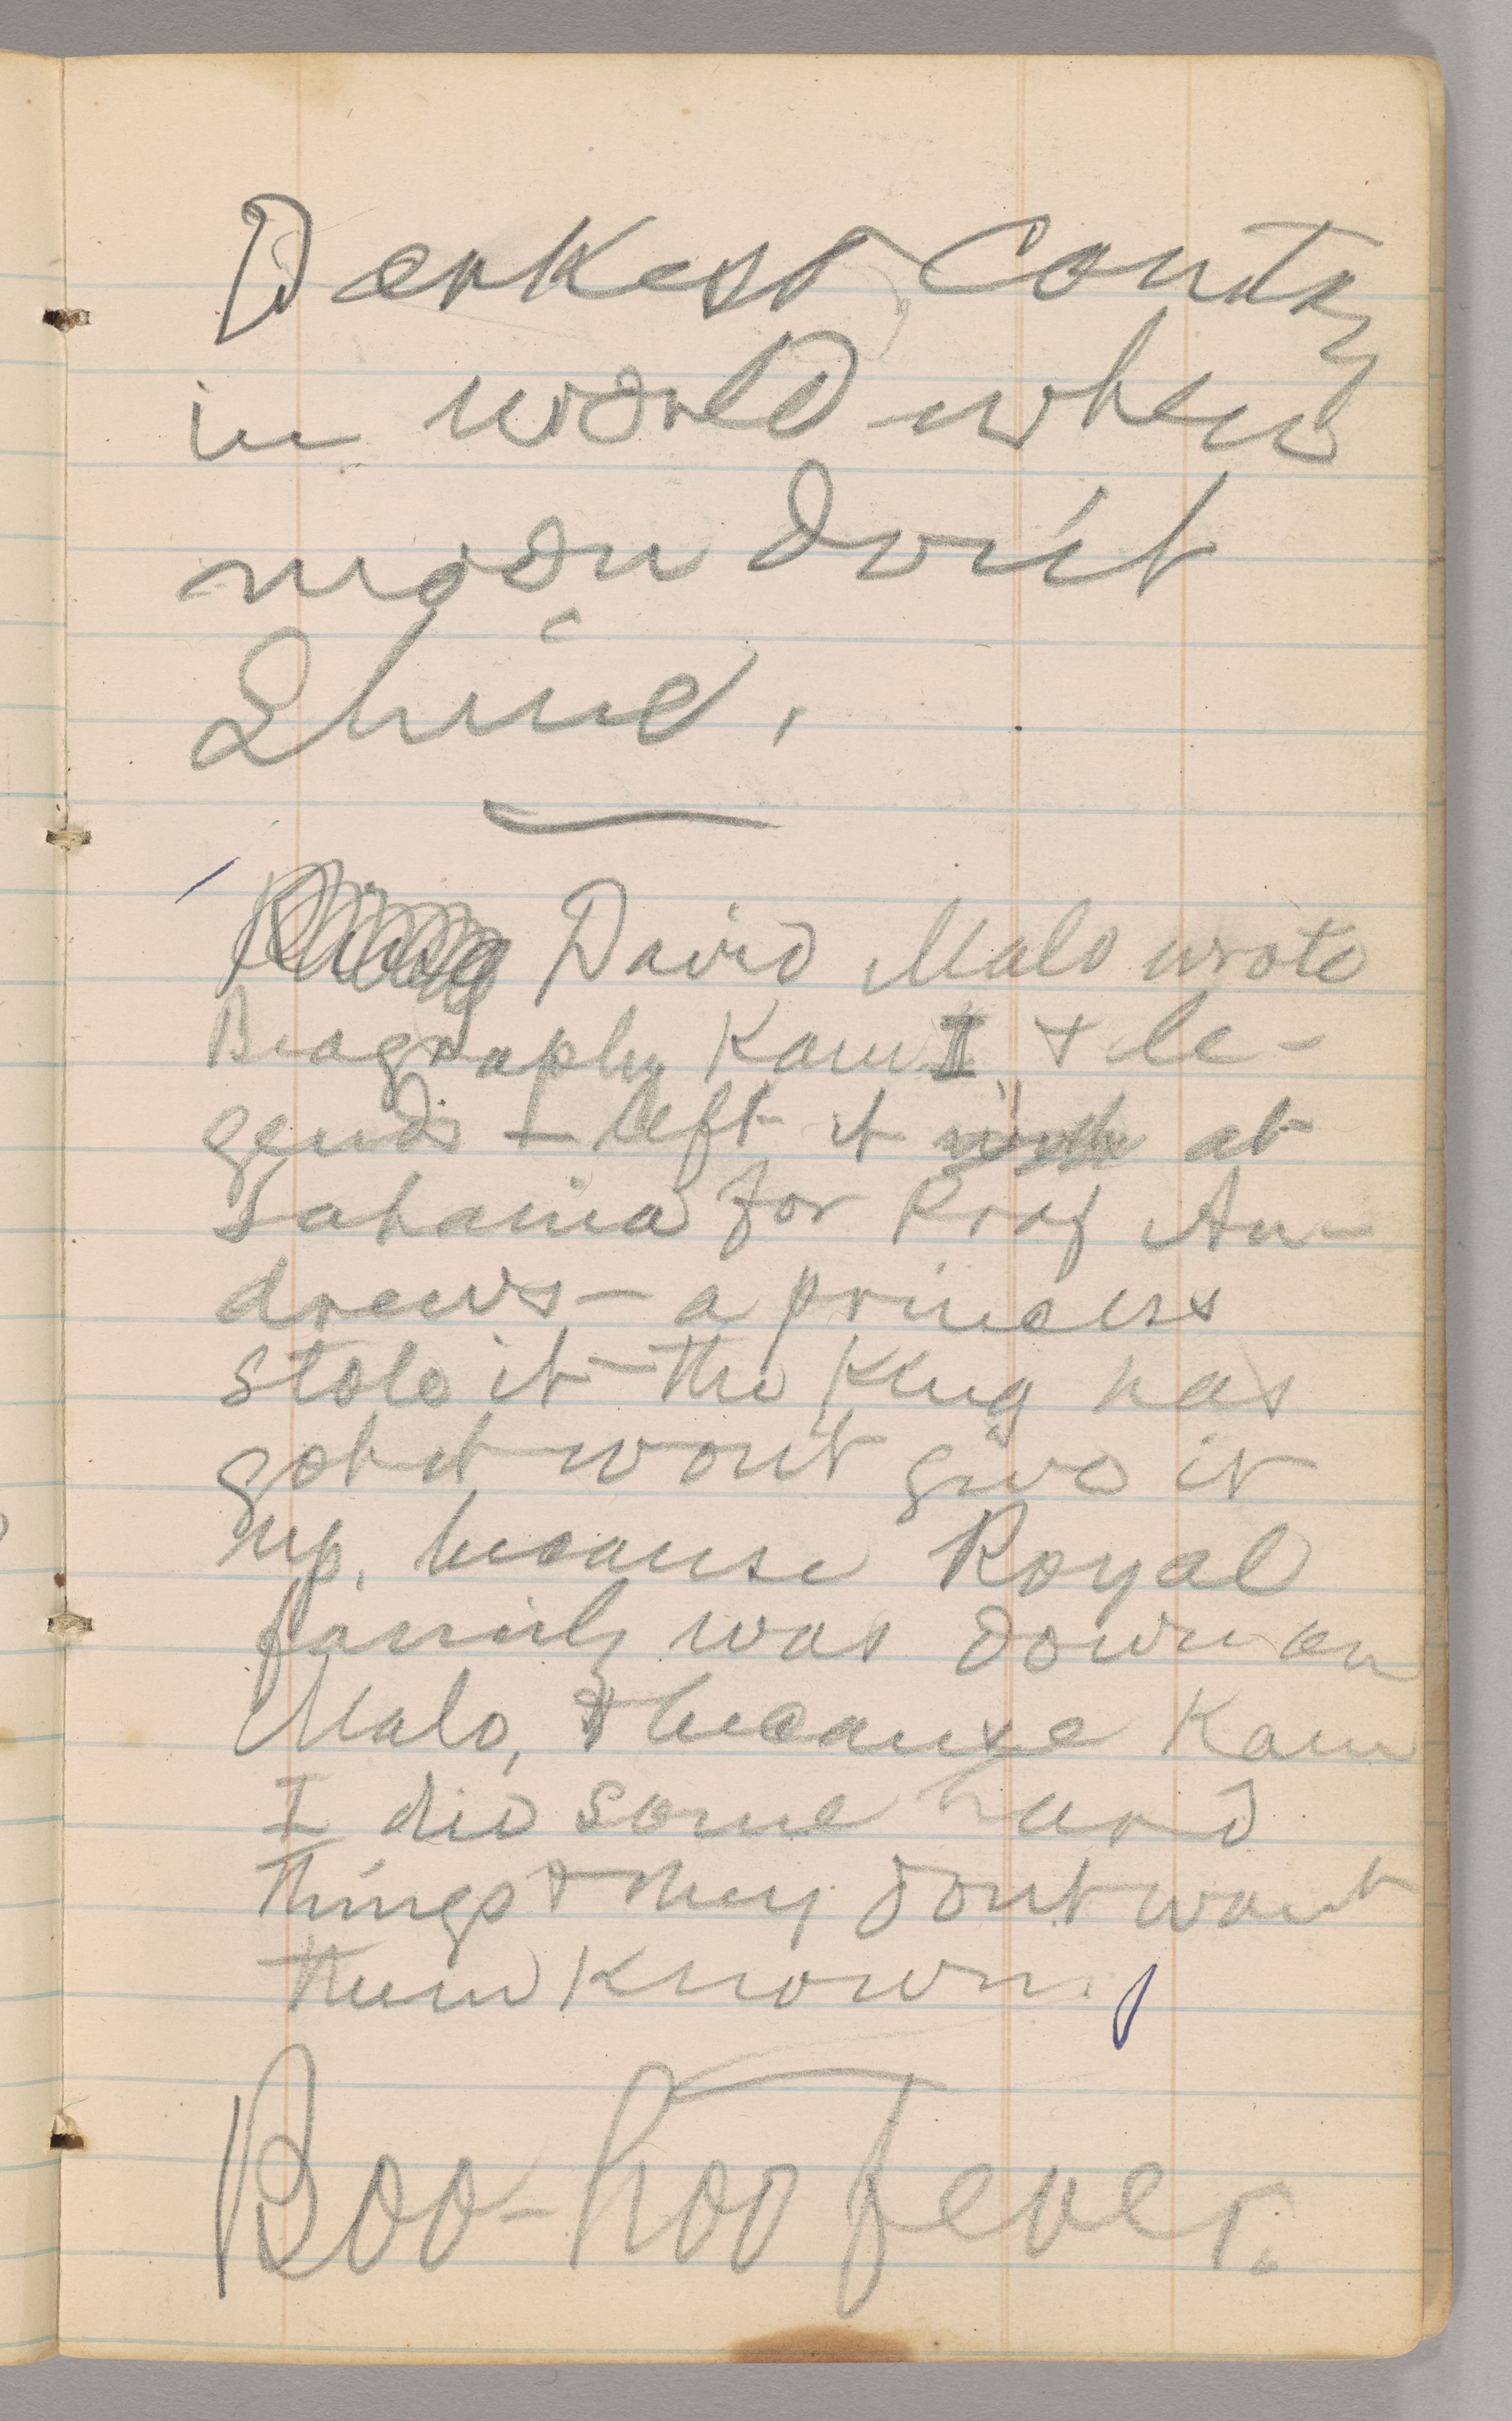 Darkest Contry
in world when
moon don't
Shine.
King David Malo wrote
Biography Kam I & le-
gends — left it with at
Lahaina for Prof An-
drews — a princess
stole it — the King has
got it won't give it
up, because Royal
family was down on
Malo, & because Kam
I did some hard
things & they don't want
them known.
Boo-hoo fever.